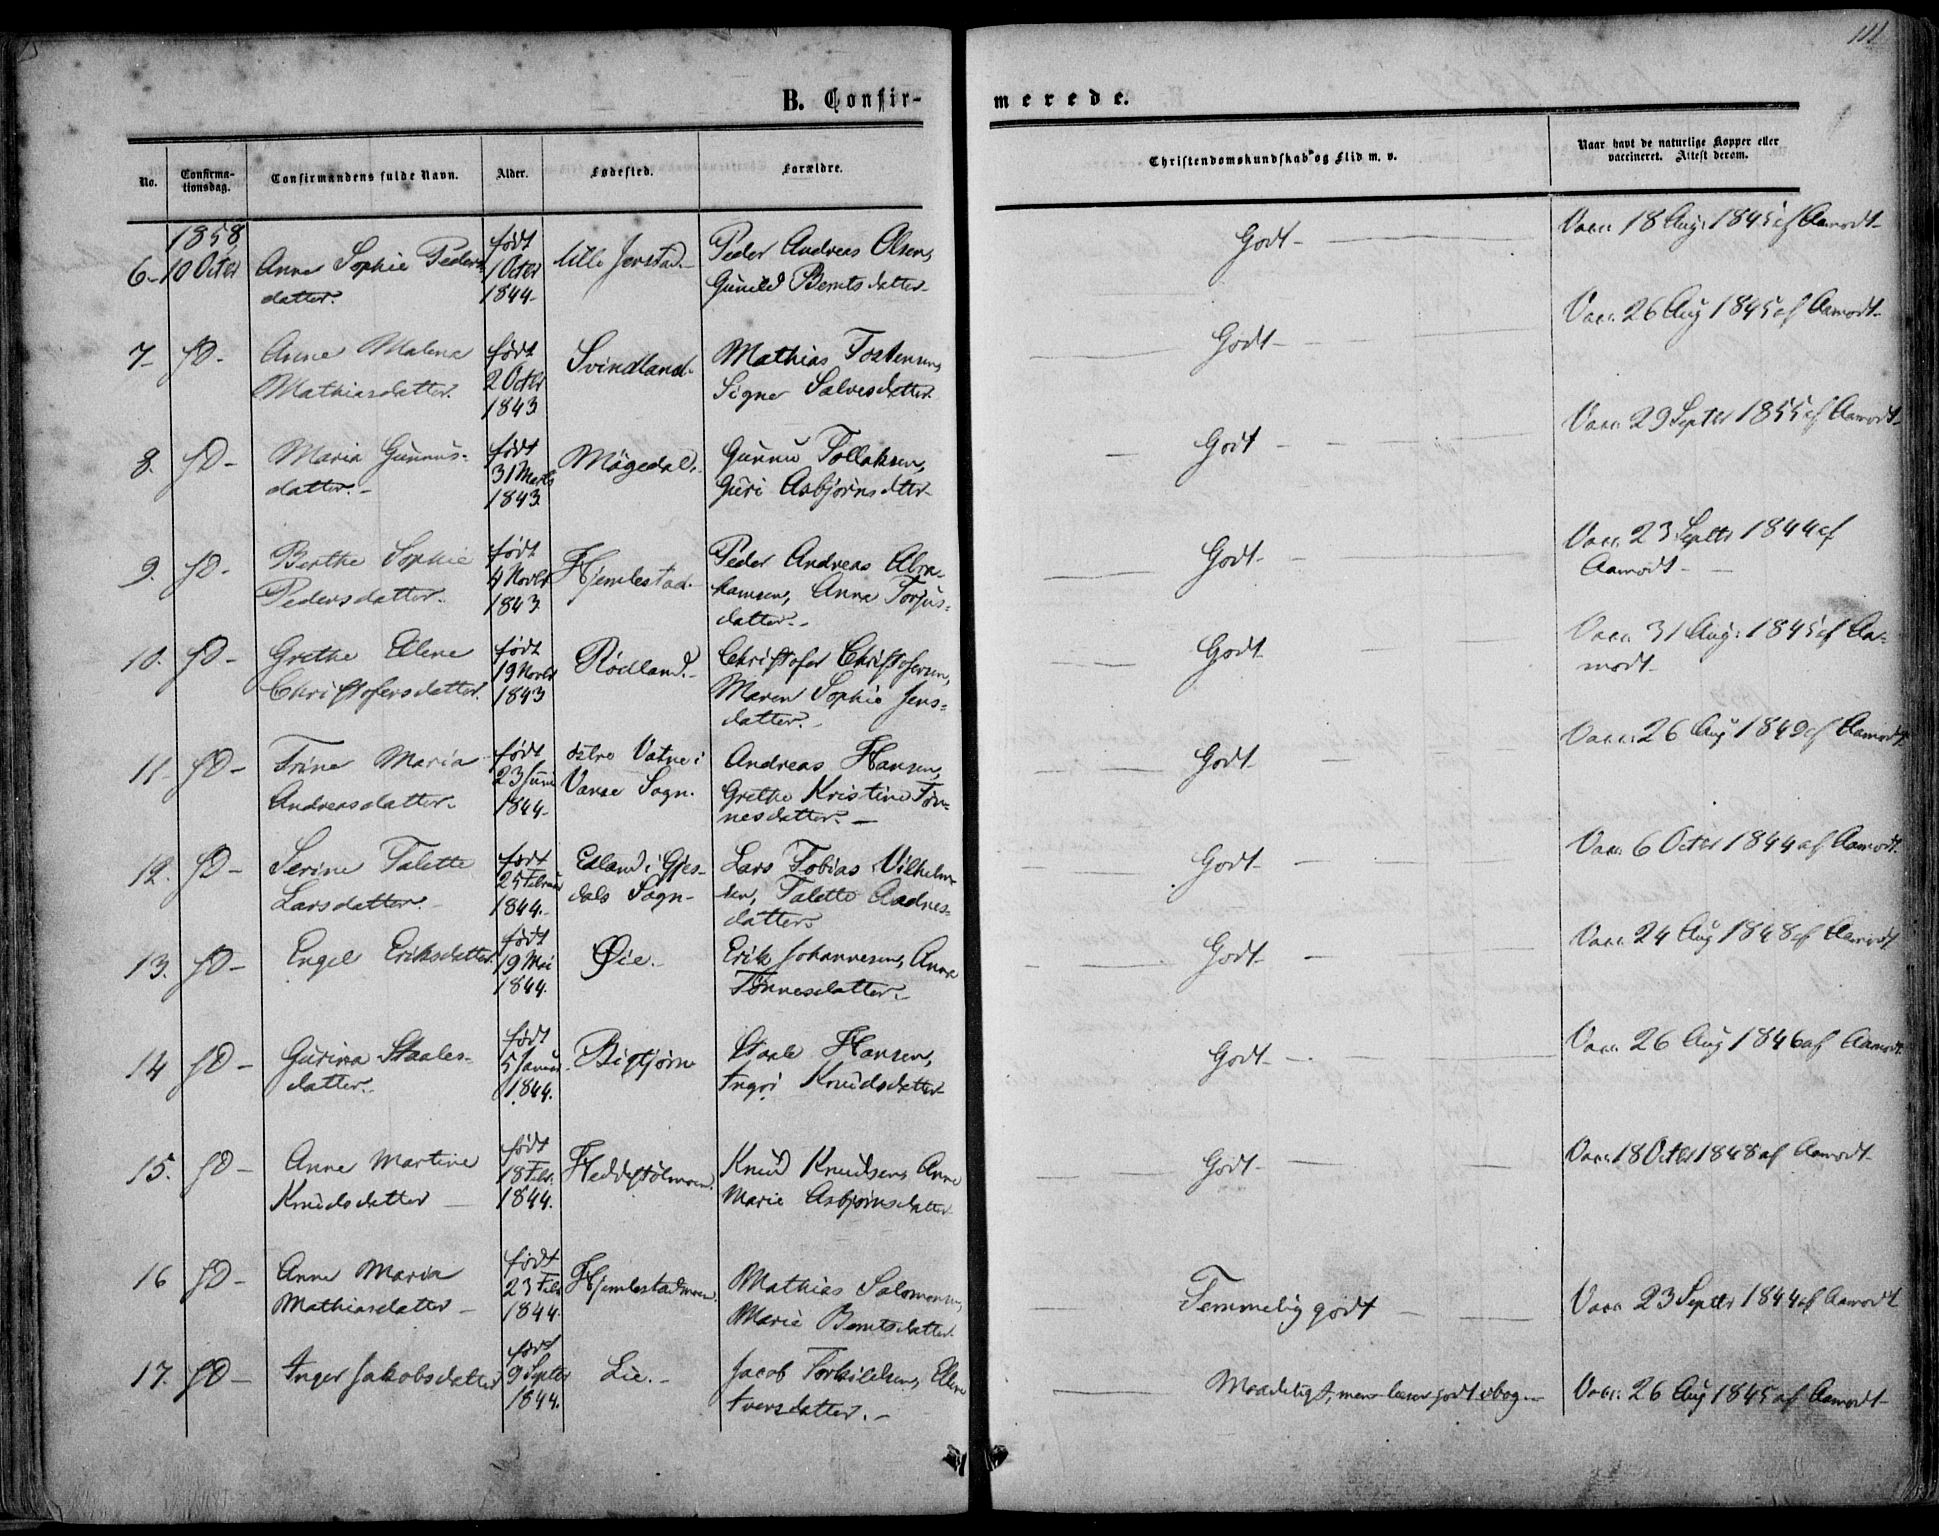 111
B. Confir-
merede.
No.
Confirma-
tionsdag.
Confirmandens fulde Navn.
Alder.
Fødested.
Forældre.
Christendomskundskab og Flid m. v.
Naar havt de naturlige Kopper eller
vaccineret. Attest derom.
1858
6- 10 Octer Anne Sophie Peders-
datter.
født
1 Octer
1844-
Lille Jerstad.-
Peder Andreas Olsen,
Gunild Berntsdatter-
Godt-
Vacc. 18 Aug. 1845 af Aamodt-
7- fD- Anne Malena
Mathiasdatter.
født
2 Octbr
1843
Svindland-
Mathias Tostensen,
Signe Salvesdatter.
Godt-
Vacc. 26 Aug 1845 af Aamodt-
8. fD- Maria Gunnus-
datter.-
født
31 Marts
1843.
Mögedal.
Gunnu Tollaksen,
Guri Asbjørnsdtter-
Godt-
Vacc. 29 Septbr 1855 af Aamodt-
9. fD- Berthe Sophie
Pedersdatter.
født
4 Novbr
1843.
Hjemlestad.
Peder Andreas Abra-
hamsen, Anna Torjus-
datter.-
Godt-
Vacc. 23 Septbr 1844 af
Aamodt-
10. fD- Grethe Elene
Christofersdatter.
født
19 Novbr
1843
Rödland.-
Christofer Christofersen,
Maren Sophie Jens-
datter.-
Godt
Vacc. 31 Aug. 1845 af Aa-
modt-
11- fD- Trine Maria
Andreasdatter.
født
23 Juni
1844-
östre Vatne i
Vanse Sogn.
Andreas Hansen,
Grethe Kristine Tøn-
nesdatter.-
Godt-
Vacc. 26 Aug 1849 af Aamodt-
12. fD- Serine Talette
Larsdatter.
født
25 Februar
1844.-
Edland i Gjes-
dals Sogn-
Lars Tobias Vilhelm-
sen, Talette Aadnes-
datter
Godt-
Vacc. 6 Octer 1844 af Aamodt.
13. fD- Engel Eriksdatter
født
19 Mai
1844.
Øie.-
Erik Johannesen, Anna
Tønnesdatter.-
Godt-
Vacc. 24 Aug 1848 af Aamodt
14 fD- Gurina Staales-
datter.
født
5 Januar
1844.
Bigtjørn
Staale Hansen,
Ingri Knudsdatter-
Godt-
Vacc. 26 Aug 1846 af Aamodt.
15. fD- Anne Martine
Knudsdatter-
født
18 Febr.
1844.
Knud Knudsen, Anne
Marie Asbjørnsdatter
Godt-
Vacc. 18 Octbr 1848 af Aamodt-
16 fD- Anne Maria
Mathiasdatter-
født
23 Febr
1844.
Hjemlestadmoen.
Mathias Salomonsen,
Marie Berntsdatter.
Temmelig godt-
Vacc. 23 Septbr 1844 af Aamodt
17. fD- Inger Jakobsdatter
født
9 Septbr
1844.
Lie.-
Jacob Torkildsen, Ellen
Iversdatter.-
Maadeligt, men læser godt i bog.-
Vacc. 26 Aug 1845 af Aamodt-